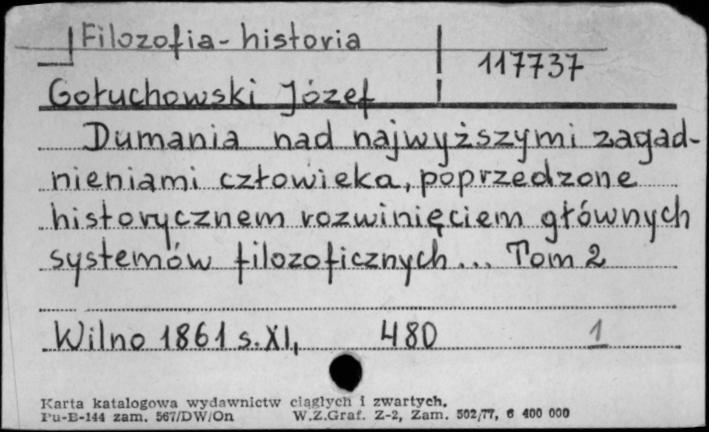 Filozofia - historia
117737
Gołuchowski Józef
Dumania nad najwyższymi zagad-
nieniami człowieka, poprzedzone
historycznem rozwinięciem głównych
systemów filozoficznych... Tom 2
Wilno 1861 s. XI, 480 1
Karta katalogowa wydawnictw ciągłych i zwartych.
Pu-B-144 zam. 567/DW/On W.Z.Graf. Z-2, Zam. 502/77, 6 400 000